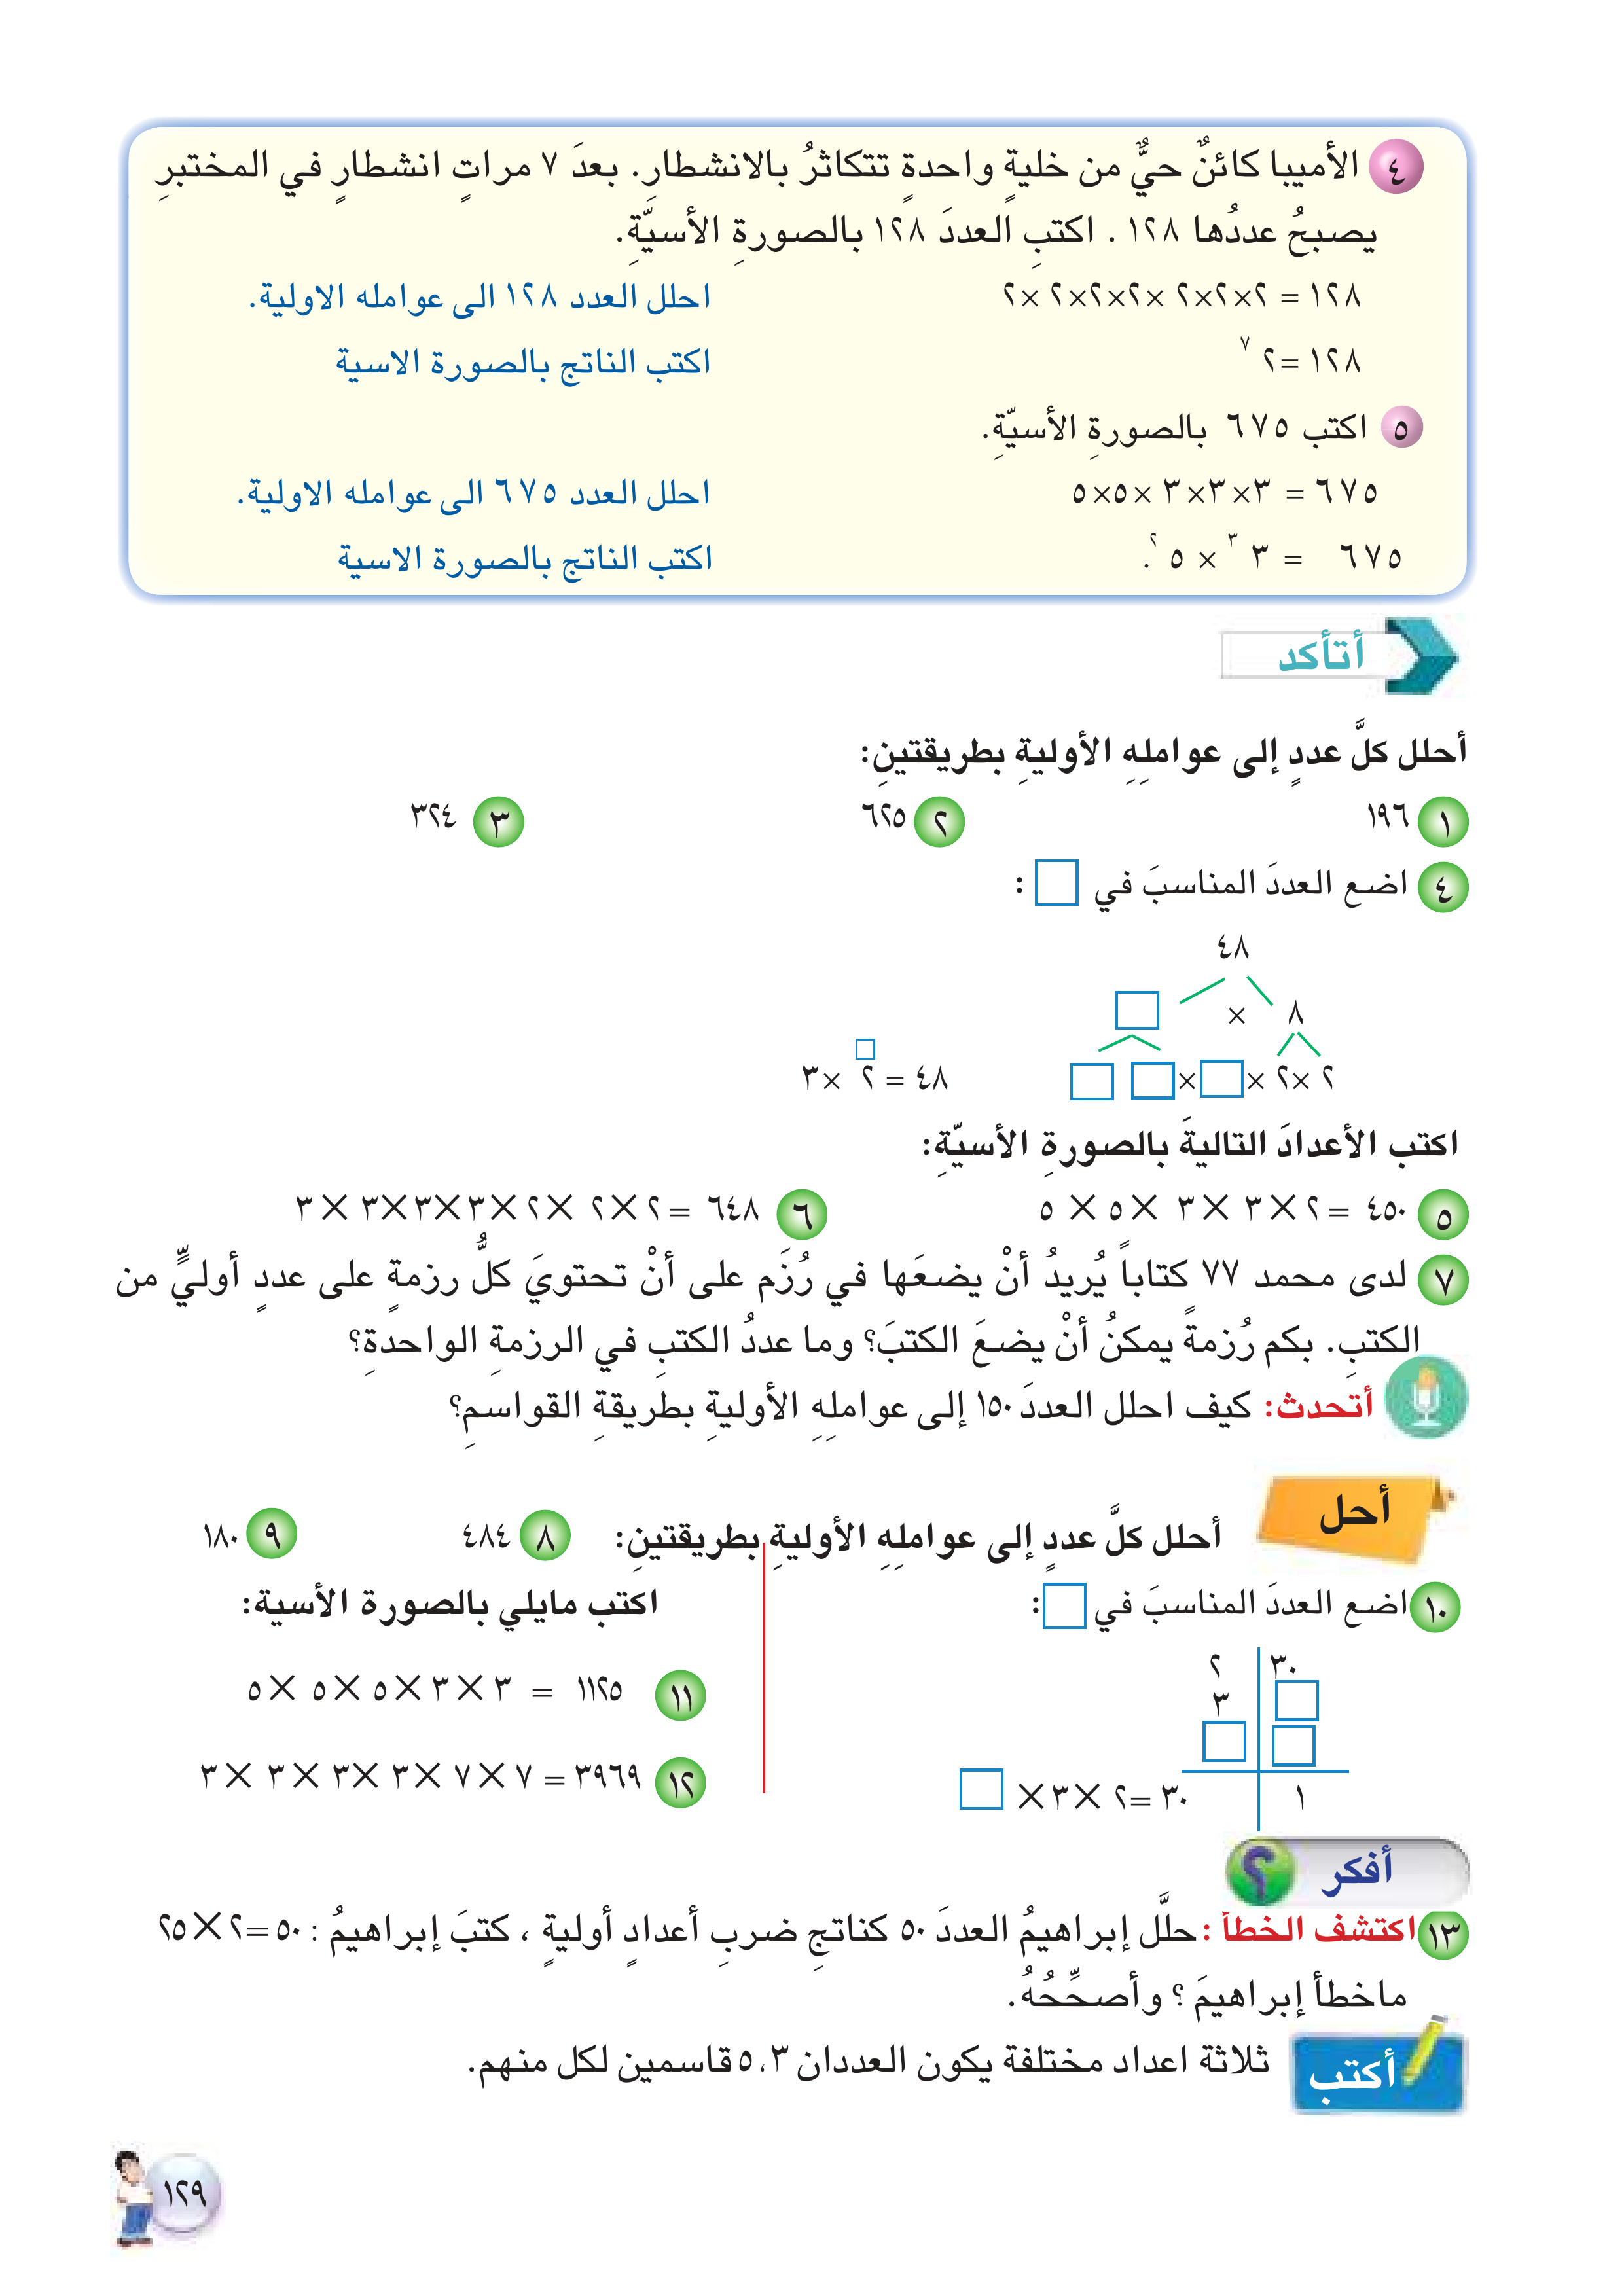 ٤ الأميبا كائنٌ حيٌّ من خليةٍ واحدةٍ تتكاثرُ بالانشطارِ. بعدَ ٧ مراتٍ انشطارٍ في المختبرِ
يصبحُ عددُها ١٢٨ . اكتبِ العددَ ١٢٨ بالصورةِ الأسيّةِ.
١٢٨ = ٢×٢×٢ ×٢×٢×٢ ×٢ احلل العدد ١٢٨ الى عوامله الاولية.
١٢٨ =٢ ٧ اكتب الناتج بالصورة الاسية
٥ اكتب ٦٧٥ بالصورةِ الأسيّةِ.
٦٧٥ = ٣×٣×٣ ×٥×٥ احلل العدد ٦٧٥ الى عوامله الاولية.
٦٧٥ = ٣ ٣ × ٥ ٢ . اكتب الناتج بالصورة الاسية
أتأكد
أحلل كلَّ عددٍ إلى عواملِهِ الأوليةِ بطريقتينِ:
١ ١٩٦ ٢ ٦٢٥ ٣ ٣٢٤
٤ اضع العددَ المناسبَ في :
٤٨
٨ ×
٢ ×٢ × × ٤٨ = ٢ ×٣
اكتب الأعدادَ التاليةَ بالصورةِ الأسيّةِ:
٥ ٤٥٠ = ٢ × ٣ × ٣ × ٥ × ٥ ٦ ٦٤٨ = ٢×٢ ×٢×٣×٣×٣ ×٣
٧ لدى محمد ٧٧ كتاباً يُريدُ أنْ يضعَها في رُزَم على أنْ تحتويَ كلُّ رزمةٍ على عددٍ أوليٍّ من
الكتبِ. بكم رُزمةً يمكنُ أنْ يضعَ الكتبَ؟ وما عددُ الكتبِ في الرزمةِ الواحدةِ؟
أتحدث: كيف احلل العددَ ١٥٠ إلى عواملِهِ الأوليةِ بطريقةِ القواسمِ؟
أحل
أحلل كلَّ عددٍ إلى عواملِهِ الأوليةِ بطريقتينِ: ٨ ٤٨٤ ٩ ١٨٠
١٠ اضع العددَ المناسبَ في :
٣٠ ٢
٣
١
٣٠ =٢ ×٣×
اكتب مايلي بالصورة الأسية:
١١ ١١٢٥ = ٣ ×٣ ×٥ ×٥ ×٥
١٢ ٣٩٦٩ = ٧ ×٧ ×٣ ×٣ ×٣ ×٣
أفكر
؟
١٣ اكتشف الخطأ : حلَّل إبراهيمُ العددَ ٥٠ كناتجِ ضربِ أعدادٍ أوليةٍ ، كتبَ إبراهيمُ : ٥٠ =٢×٢٥
ماخطأ إبراهيمَ ؟ وأصحِّحُهُ.
أكتب ثلاثة اعداد مختلفة يكون العددان ٣،٥ قاسمين لكل منهم.
١٢٩